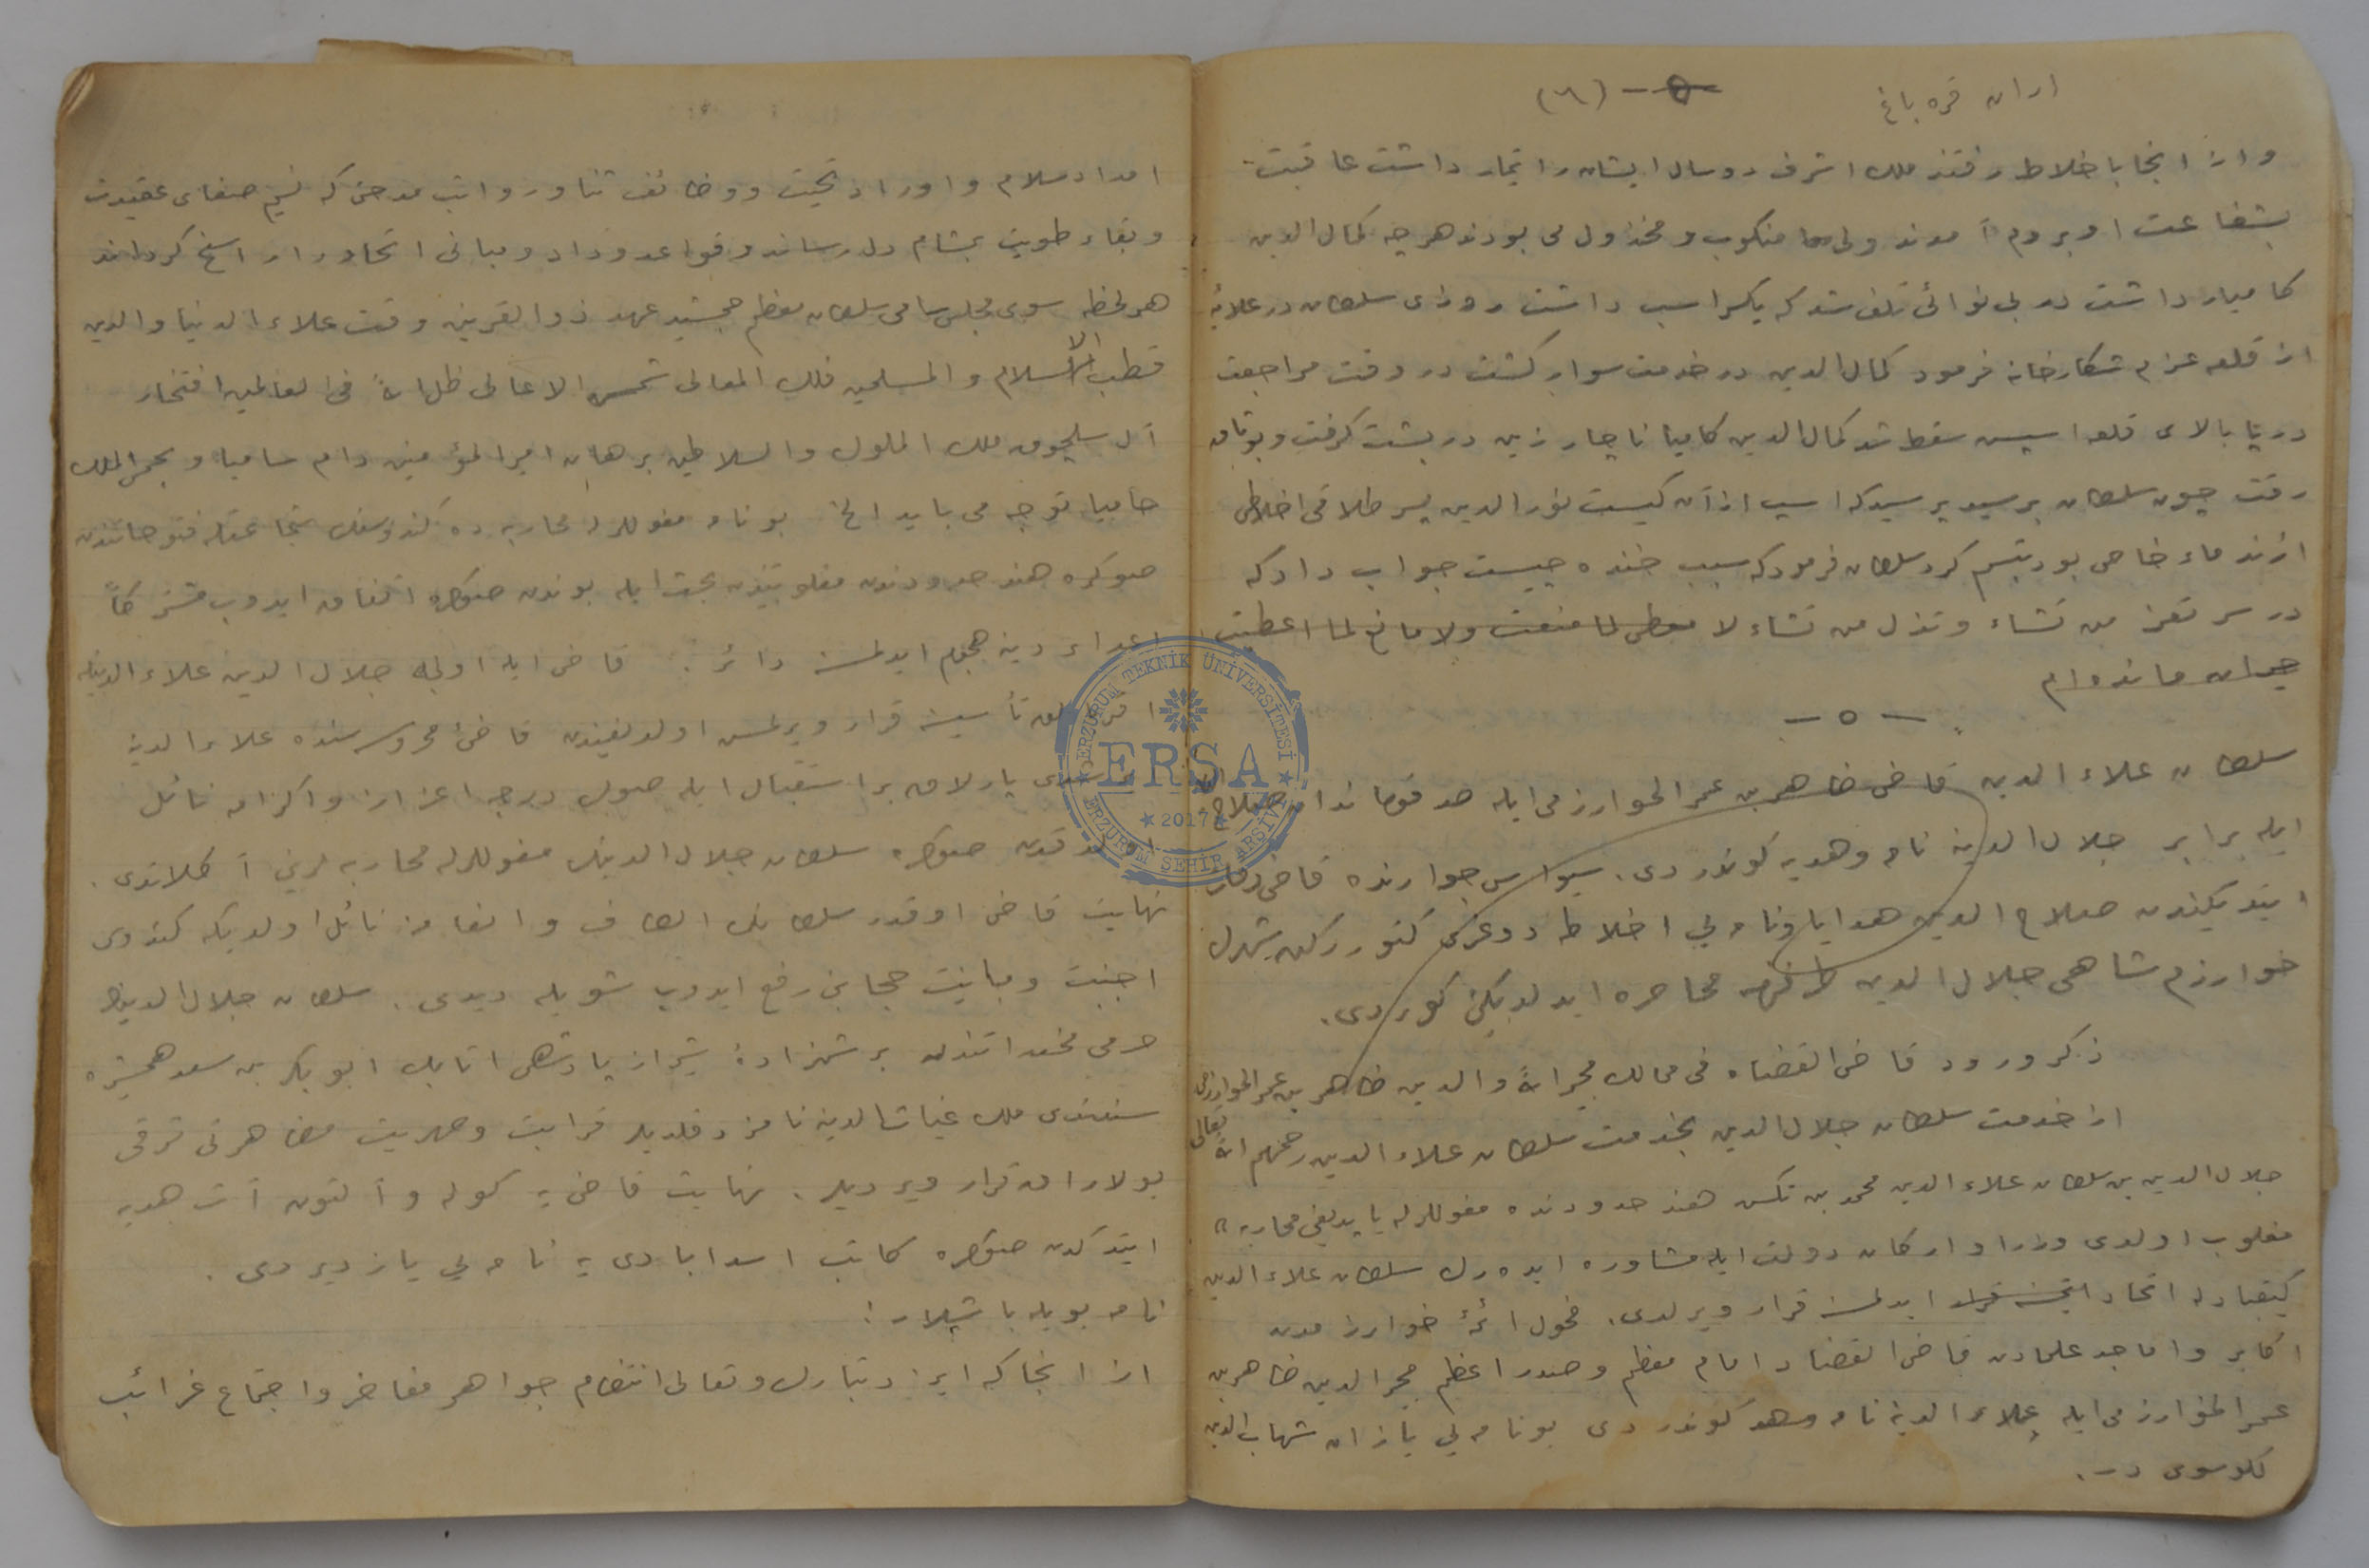 اران قره باغ
(٦) -
وازانجا با خلاط رفتند ملك اشرف دو سال ایشان را تیمار داشت عاقبت
بشفاعت او بروم آمدند ولی منكوب و مخذول می بودند هرچه كمال الدین
كامیار داشت در بی نوائی تلف شد كه یكسر اسب داشت روزی سلطان در علائیه
از قلعه عزم شكارخانه فرمود كمال الدین در خدمت سوار كشت در وقت مراجعت
بالای قلعه اسبش سقط شد كمال الدین كامیار ناچار زین در پشت كرفت و بوثاق
رفت چون سلطان برسید پرسید كه اسب ازآن كیست نور الدین پسر طلاقی اخلاطی
از ندماء خاص بود تبسم كرد سلطان فرمود كه سبب خنده چیست جواب داد كه
در سر تعز من تشاء و تذل من تشاء لا معطی لما منعت ولا مانع لما اعطیت
حیران مانده ام
- ٥ -
سلطان علاء الدین قاضی ظاهر بن عمر الخوارزمی ایله صلاح الدین
ایله برابر جلال الدینه نامه و هدیه كوندردی. سیواس جوارنده قاضی وفات
ایتدیكندن صلاح الدین هدایا و نامه یی اخلاطه دوغری كتوررکن شهرك
خوارزم شاهی جلال الدین طرفندن محاصره ایدلدیكنی كوردی.
ذكر ورود قاضی القضاه فی ممالك مجیر الملة والدین طاهر بن عمر الخوارزمی
از خدمت سلطان جلال الدین بخدمت سلطان علاء الدین رحمهم الله تعالی
جلال الدین بن سلطان علاء الدین محمد بن تكش هند حدودنده مغوللرله یاپدیغی محاربه ده
مغلوب اولدی وزرا و اركان دولت ایله مشاوره ایده رك سلطان علاء الدین
كیقباد له اتحاد ایدلمسنه قرار ویرلدی. فحول ائمهٔ خوارزمدن
اكابر و اماجد علمادن قاضی القضاة امام معظم و صدر اعظم مجیر الدین طاهر بن
عمر الخوارزمی ایله علاء الدینه نامه كوندردی بو نامه یی یازان شهاب الدین
در.
امداد سلام و اوراد تحیت و وظائف ثنا و رواتب مدحتی كه نسیم صفای عقیدت
و نقاء طویت بمشام دل رساند و قواعد وداد و مبانی اتحاد را راسخ كرداند
هر لحظه سوی مجلس سامی سلطان معظم جمشید عهد ذوالقرنین وقت علاء الدنیا والدین
قطب الاسلام والمسلمین فلك المعالی شمس الاعالی ظل الله فی العالمین افتخار
آل سلجوق ملك الملوك والسلاطین برهان امیر المؤمنین دام سامیا و بحمی الملك
حامیا توجه می یابد الخ بو نامه مغوللرله محاربه ده كندوسنك شجاعتله فتوحاتندن
صوكره هند حدودندن مغلوبیتندن بحث ایله بوندن صوكره اتفاق ایدوب مشتركاً
اعداء دینه هجوم ایدلمسنه دائر. قاضی ایله اولجه جلال الدین علاء الدینله
تأسیسنه قرار ویرلمش اولدیغندن قاضی محروسه سنده علاء الدینه
پارلاق بر استقبال ایله صوك درجه اعزاز و اكرامه نائل
صوكره سلطان جلال الدینك مغوللرله محاربه لرینی آكلاتدی.
نهایت قاضی او قدر سلطانك الطاف و انعامنه نائل اولدیكه كندوی
اجنبیت و مباینت حجابنی رفع ایدوب شویله دیدی. سلطان جلال الدینك
حرمی بر شهزادهٔ شیراز پادشاهی اتابك ابو بكر بن سعد همشیره
سنندی ملك غیاث الدینه نامزد قلدیلر قرابت و صهریت مظاهرتی ترقی
بولارق قرار ویردیلر. نهایت قاضی یه كوله و آلتون آت هدیه
ایتدكدن صوكره كاتب اسدابادی یه نامه یی یازدیردی.
نامه بویله باشلار:
از انجا كه ایزد تبارك و تعالی انتظام جواهر مفاخر و اجتماع غرائب
ERSA
ERZURUM TEKNİK ÜNİVERSİTESİ
2017
ERZURUM ŞEHİR ARŞİVİ